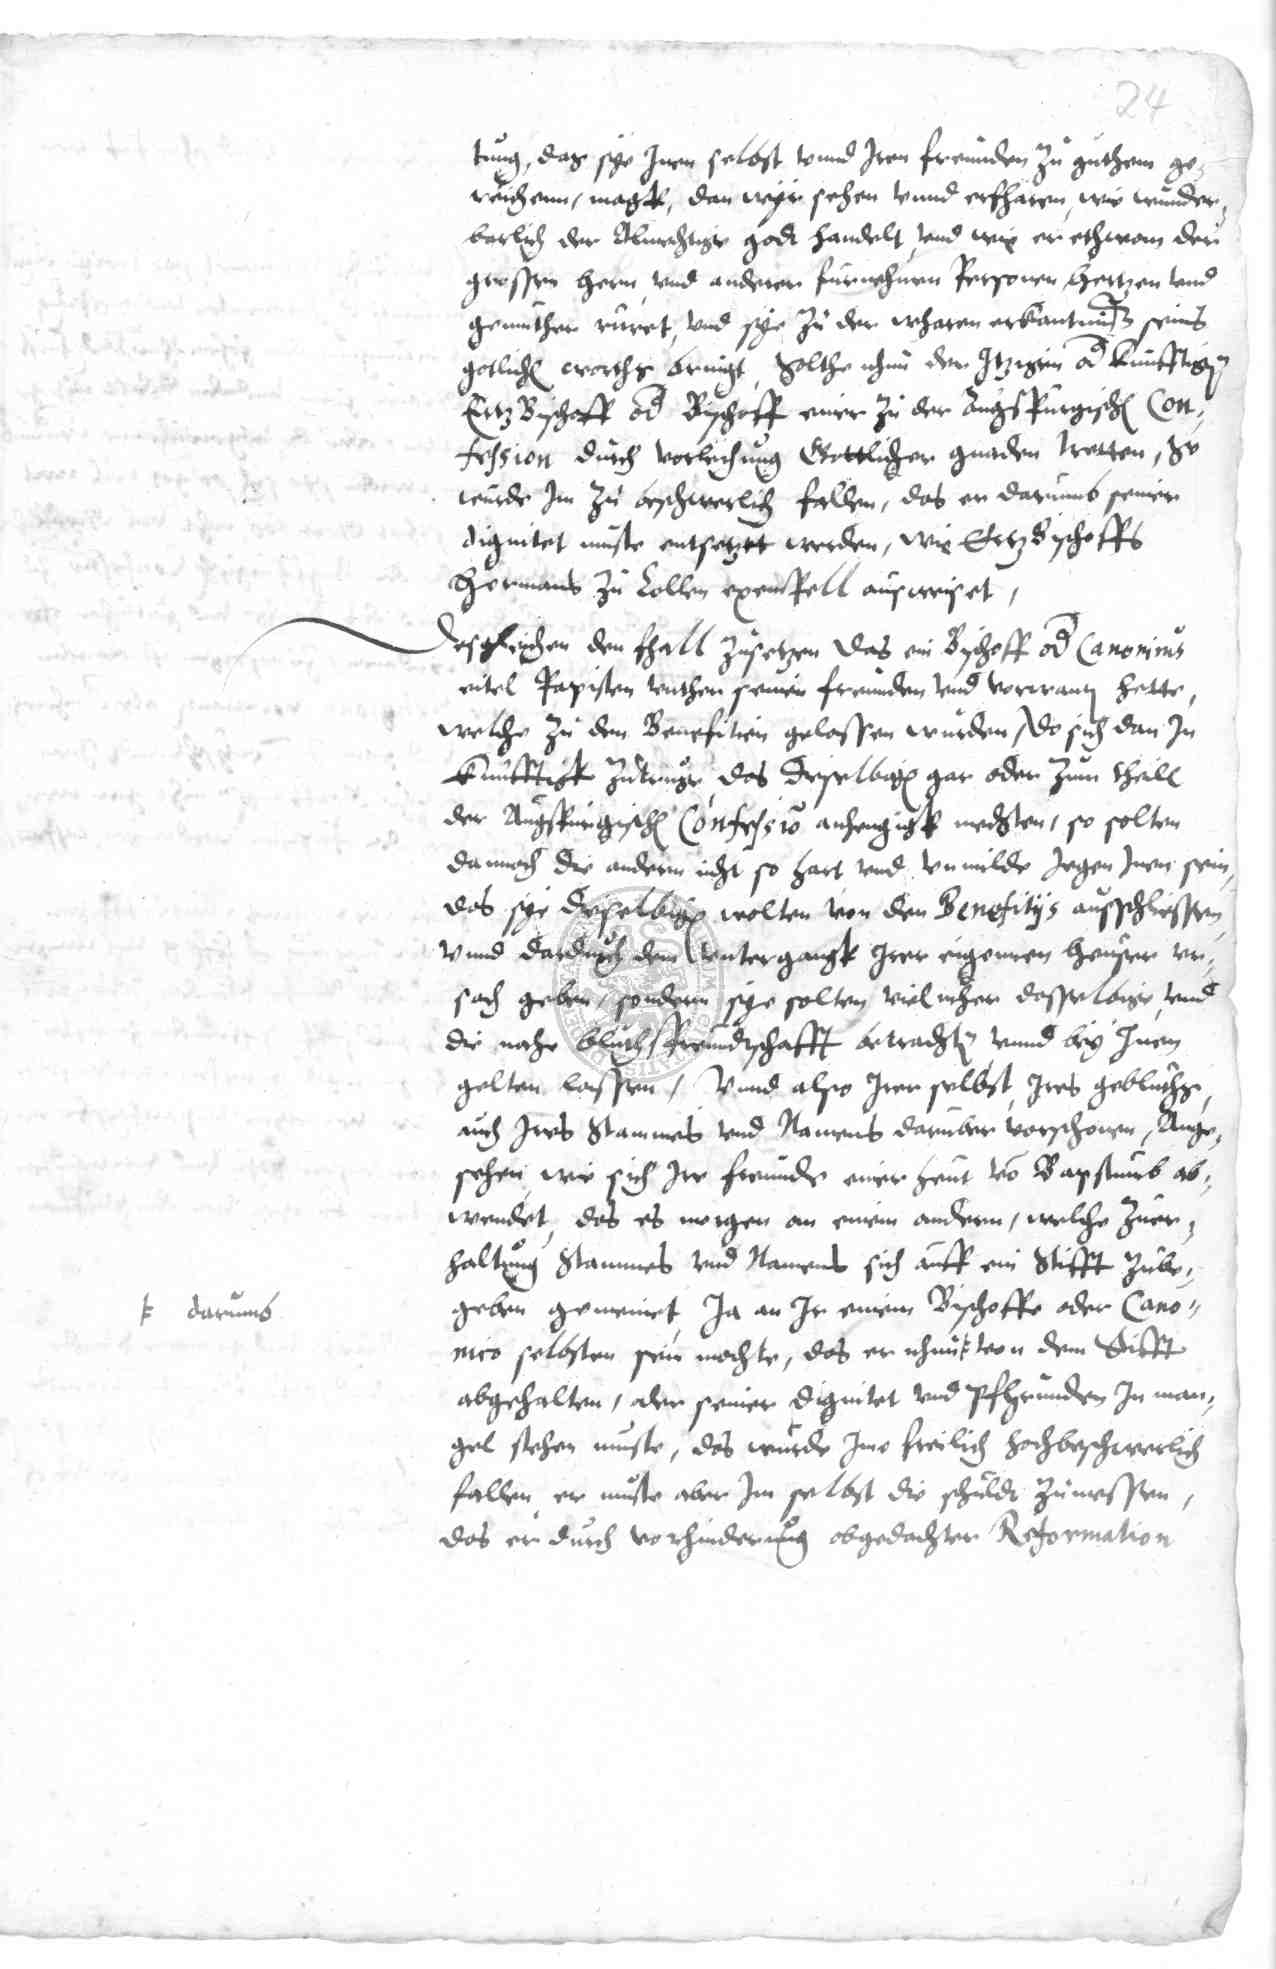 24
tung, das sye Inen selbst vnnd Iren freunden zu guthem ge-
reichenn, magk, dan wyr sehen vnnd erfharen, wie wunder-
barlich der Almechtige godt handelt, vnd wie er ethwan der
grossen hern, vnd anderer furnehmen Personen hertzen vnd
gemuther ruret, vnd sye zu der wharen erkantnus seins
gotlichen worths bringt, Solthe nhun der Itzigen od kunfftigen
Ertz Bischoff od Bischoff einer zu der Augspurgischen Con-
fession durch vorleihung Gottlicher gnaden tretten, So
wurde Im zu beschwerlich fallen, das er darumb seiner
dignitet muste entsetzet werden, wie Ertzbischoffs
Hermans zu Collen exempell ausweiset,
Desgleichen den fhall zusetzen das ein Bischoff od Canonicus
eitel Papisten vnther seinen freunden vnd vorwanten hette,
welche zu den Beneficien gelassen wurden, do sich dan In
kunfftigk zutruge, das dieselbigen gar oder zum theill
der Augspurgischen Confession anhengigk mechten, so solten
dannoch die andern nicht so hart vnd vnmilde Jegen Inen sein,
das sye dieselbigen wolten von den Benefitijs ausschliessen,
vnnd dardurch dem vntergangk Irer eigenen heuser vr-
sach geben, sondern sye solten viel mher dasselbige, vnd
die nahe bluthsfreundtschafft betrachten, vnnd bey Inen
gelten lassen, Vnnd also Irer selbst, Ires gebluths,
auch Ires Stammes vnd Namens daruber vorschonen, Ange-
sehen, wie sich Irer freunde einer heut vom Bapstumb ab-
wendet, das es morgen an einem andern, welche zu er-
haltung Stammes vnd Namens sich auff ein Stifft zube-
geben gemeinet, Ja an Ir einem Bischoffe oder Cano-
nico selbsten sein mochte, das er nhun von dem Stifft
darumb
abgehalten, oder seiner dignitet vnd Pfhrunden In man-
gel stehen muste, das wurde Ime freilich hochbeschwerlich
fallen, er muste aber Im selbst die schuldt zumessen,
das er durch vorhinderung obgedachter Reformation